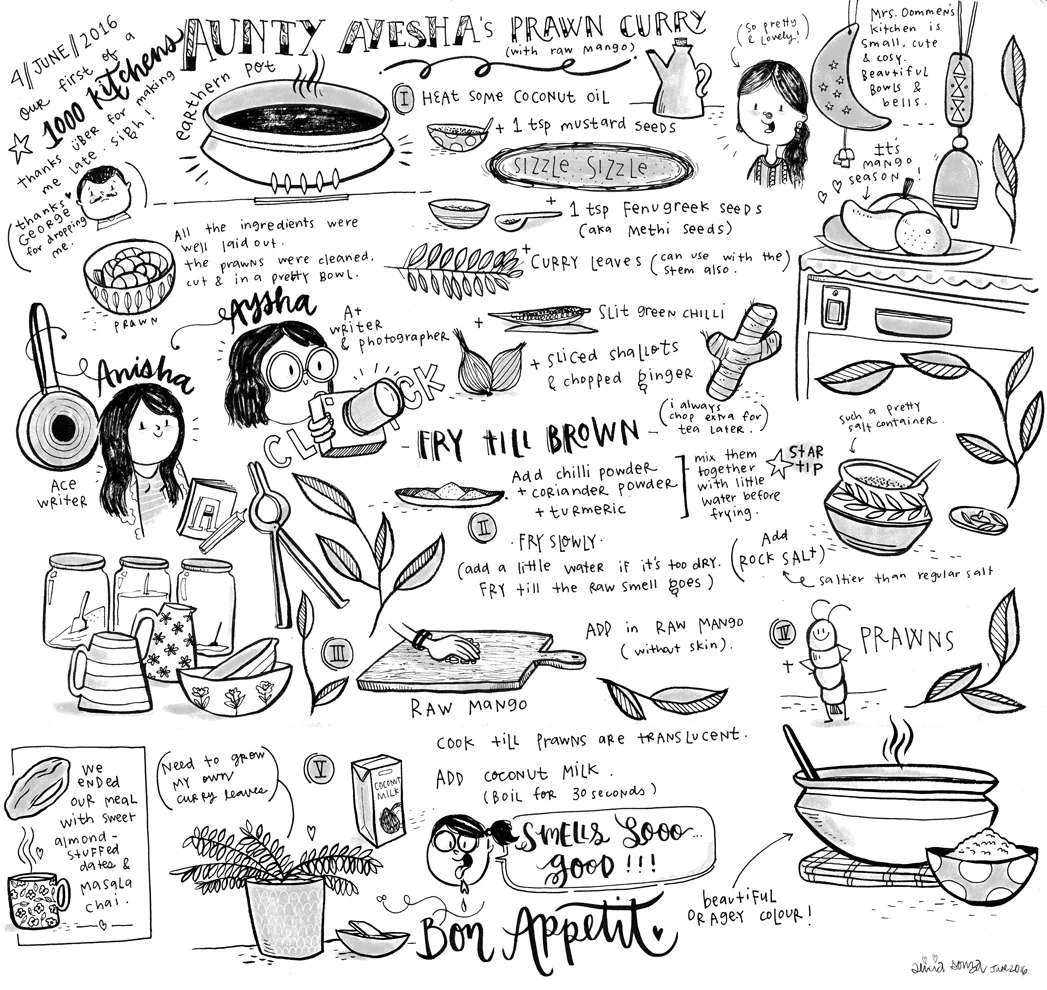 4//JUNE//2016
our first of a
1000 kitchens
thanks über for making
me late. sigh!
(thanks
GEORGE
for dropping
me.)
AUNTY AYESHA's PRAWN CURRY
(with raw mango)
earthern pot
I HEAT SOME COCONUT OIL
+ 1 tsp mustard seeds
SIZZLE SIZZLE
+ 1 tsp Fenugreek seeds
(aka Methi seeds)
+ CURRY LEAVES (can use with the)
stem also.
+ Slit green CHILLI
+ sliced shallots
& chopped ginger
(i always
chop extra for)
tea later.
(So pretty
& lovely!)
Mrs. Oommen's
kitchen is
small, cute
& cosy.
Beautiful
Bowls &
bells.
It's
mango
season!
All the ingredients were
well laid out.
the prawns were cleaned,
cut & in a pretty bowl.
PRAWN
Aysha
A+
writer
& photographer
CLICK
Anisha
Ace
writer
- FRY till BROWN -
Add chilli powder
+ coriander powder
+ turmeric
mix them
together
with little
water before
frying.
STAR
TIP
Such a pretty
salt container.
II
. FRY SLOWLY .
(add a little water if it's too dry.
FRY till the Raw smell goes)
Add
(ROCK SALT)
saltier than regular salt
III
RAW MANGO
ADD in RAW MANGO
(without skin).
IV
+ PRAWNS
COOK till Prawns are TRANSLUCENT.
V
COCONUT
MILK
ADD COCONUT MILK.
(Boil for 30 seconds)
We
ended
our meal
with sweet
almond-
stuffed
dates &
masala
chai.
(Need to grow
my own
curry leaves)
SMELLS SOOO...
GOOD !!!
Bon Appetit
beautiful
ORAGEY COLOUR!
alicia souza JUNE2016